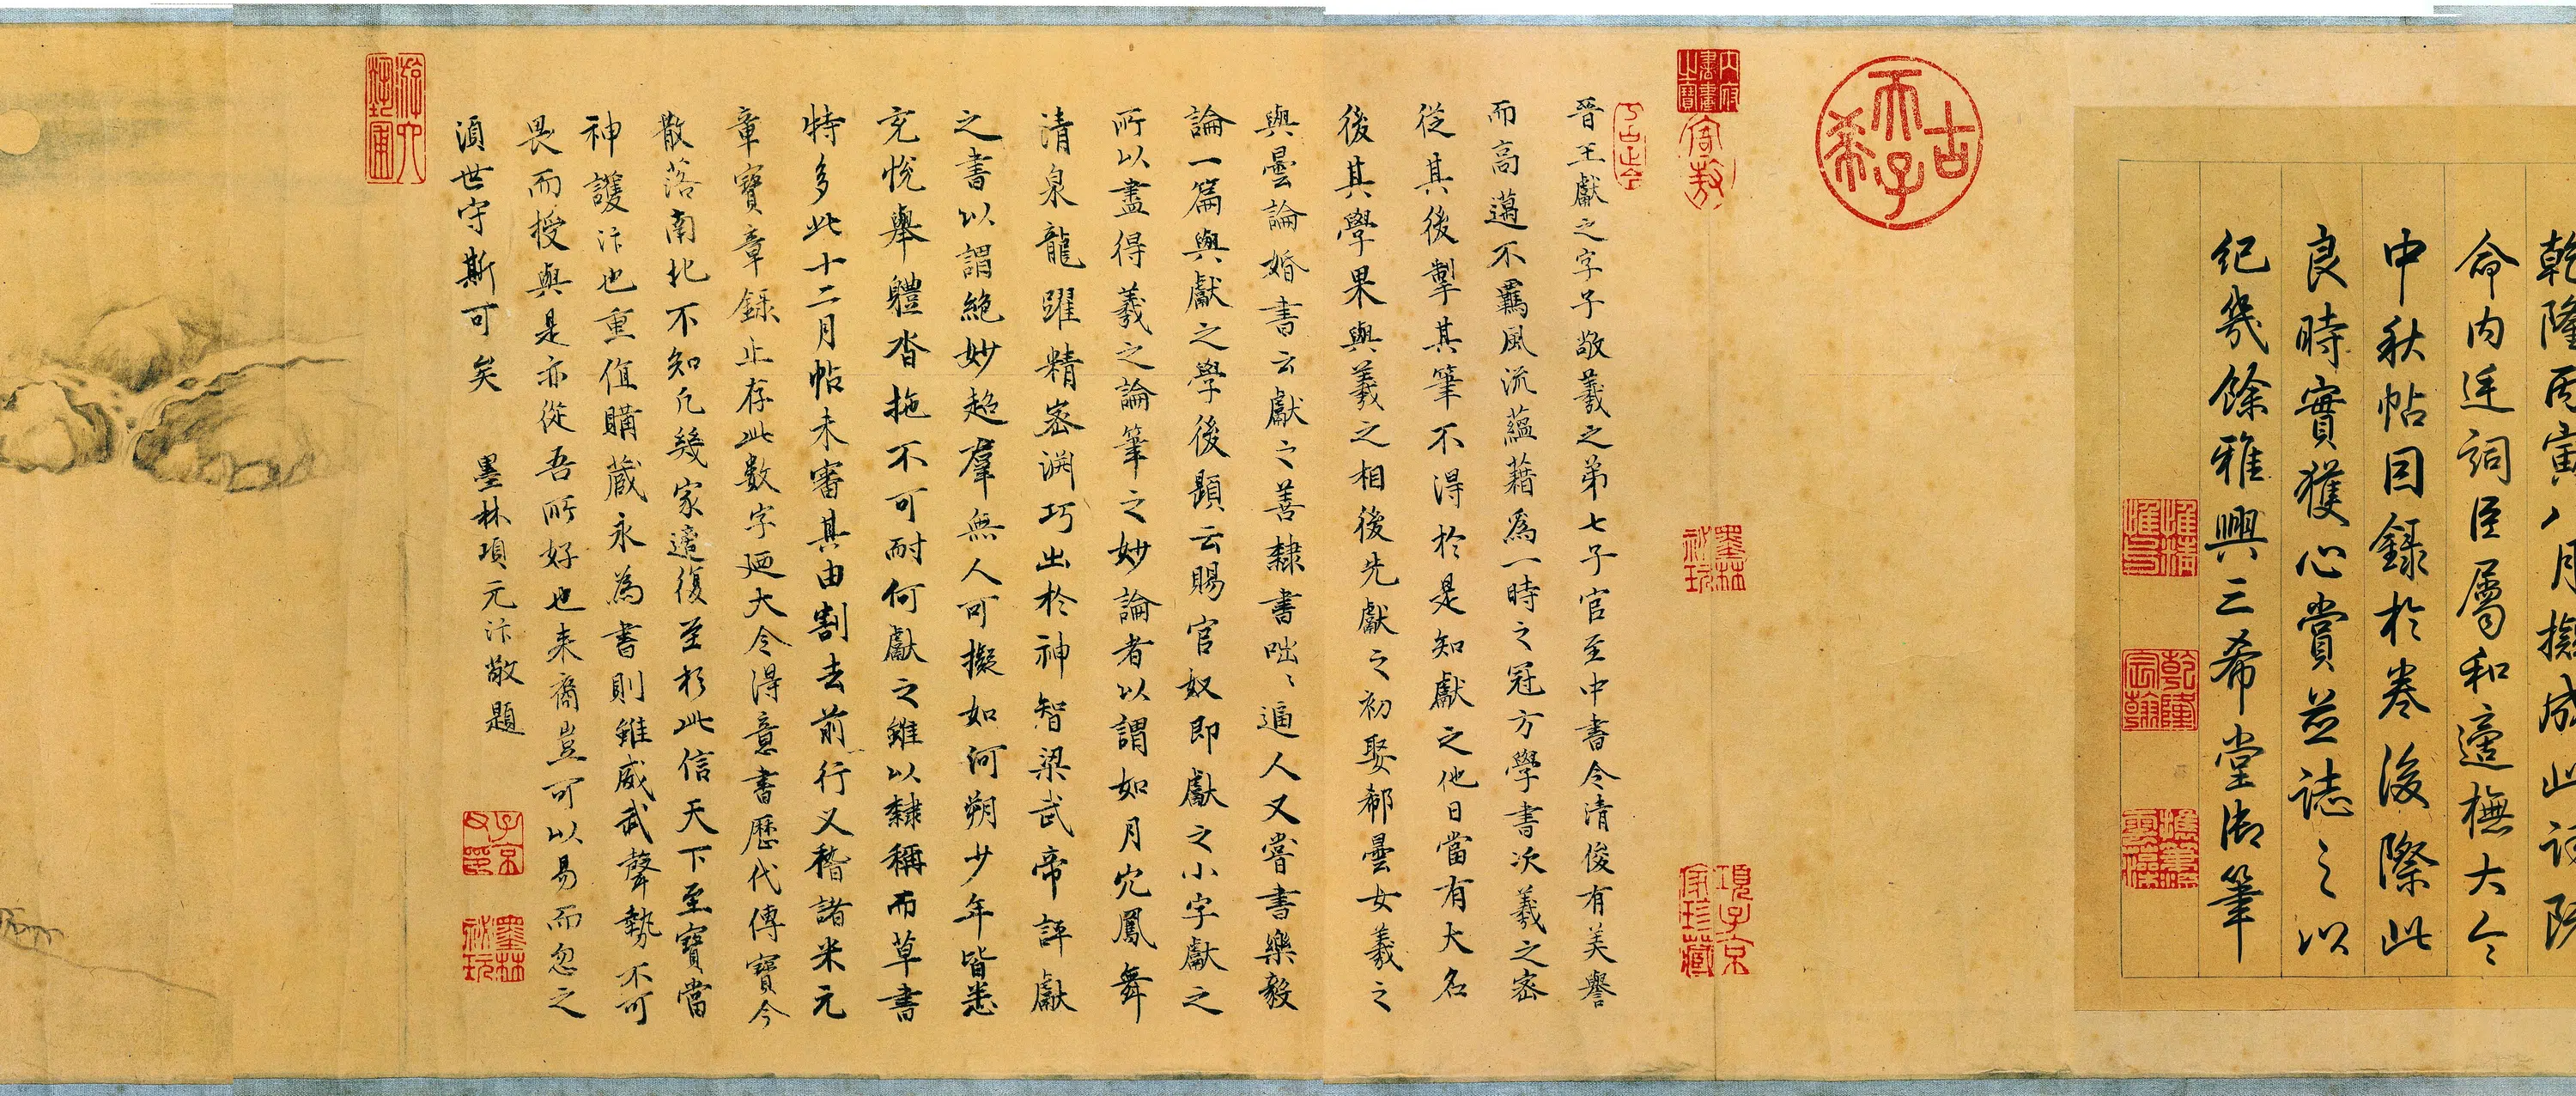 乾隆丙寅八月擬成此詠既
命內廷詞臣屬和適橅大令
中秋帖因錄於卷後際此
良時實獲心賞並誌之以
紀幾餘雅興三希堂御筆
惟精惟一
乾隆宸翰
古希天子
內府書畫之寶
寄敖
墨林祕玩
項子京家珍藏
晉王獻之字子敬羲之弟七子官至中書令清俊有美譽
而高邁不羈風流蘊藉為一時之冠方學書次羲之密
從其後掣其筆不得於是知獻之他日當有大名
後其學果與羲之相後先獻之初娶郗曇女羲之
與曇論婚書云獻之善隸書咄咄逼人又嘗書樂毅
論一篇與獻之學後題云賜官奴即獻之小字獻之
所以盡得羲之論筆之妙論者以謂如月穴鳳舞
清泉龍躍精密淵巧出於神智梁武帝評獻
之書以謂絕妙超群無人可擬如河朔少年皆悉
充悅舉體沓拖不可耐何獻之雖以隸稱而草書
特多此十二月帖未審其由割去前行又稽諸米元
章寶章錄止存此數字廼大令得意書歷代傳寶今
散落南北不知凡幾家適復至於此信天下至寶當
神護汴也重值購藏永為書則雖威武聲勢不可
畏而授與是亦從吾所好也來裔豈可以易而忽之
湏世守斯可矣 墨林項元汴敬題
子京父印
墨林祕玩
游六藝圃